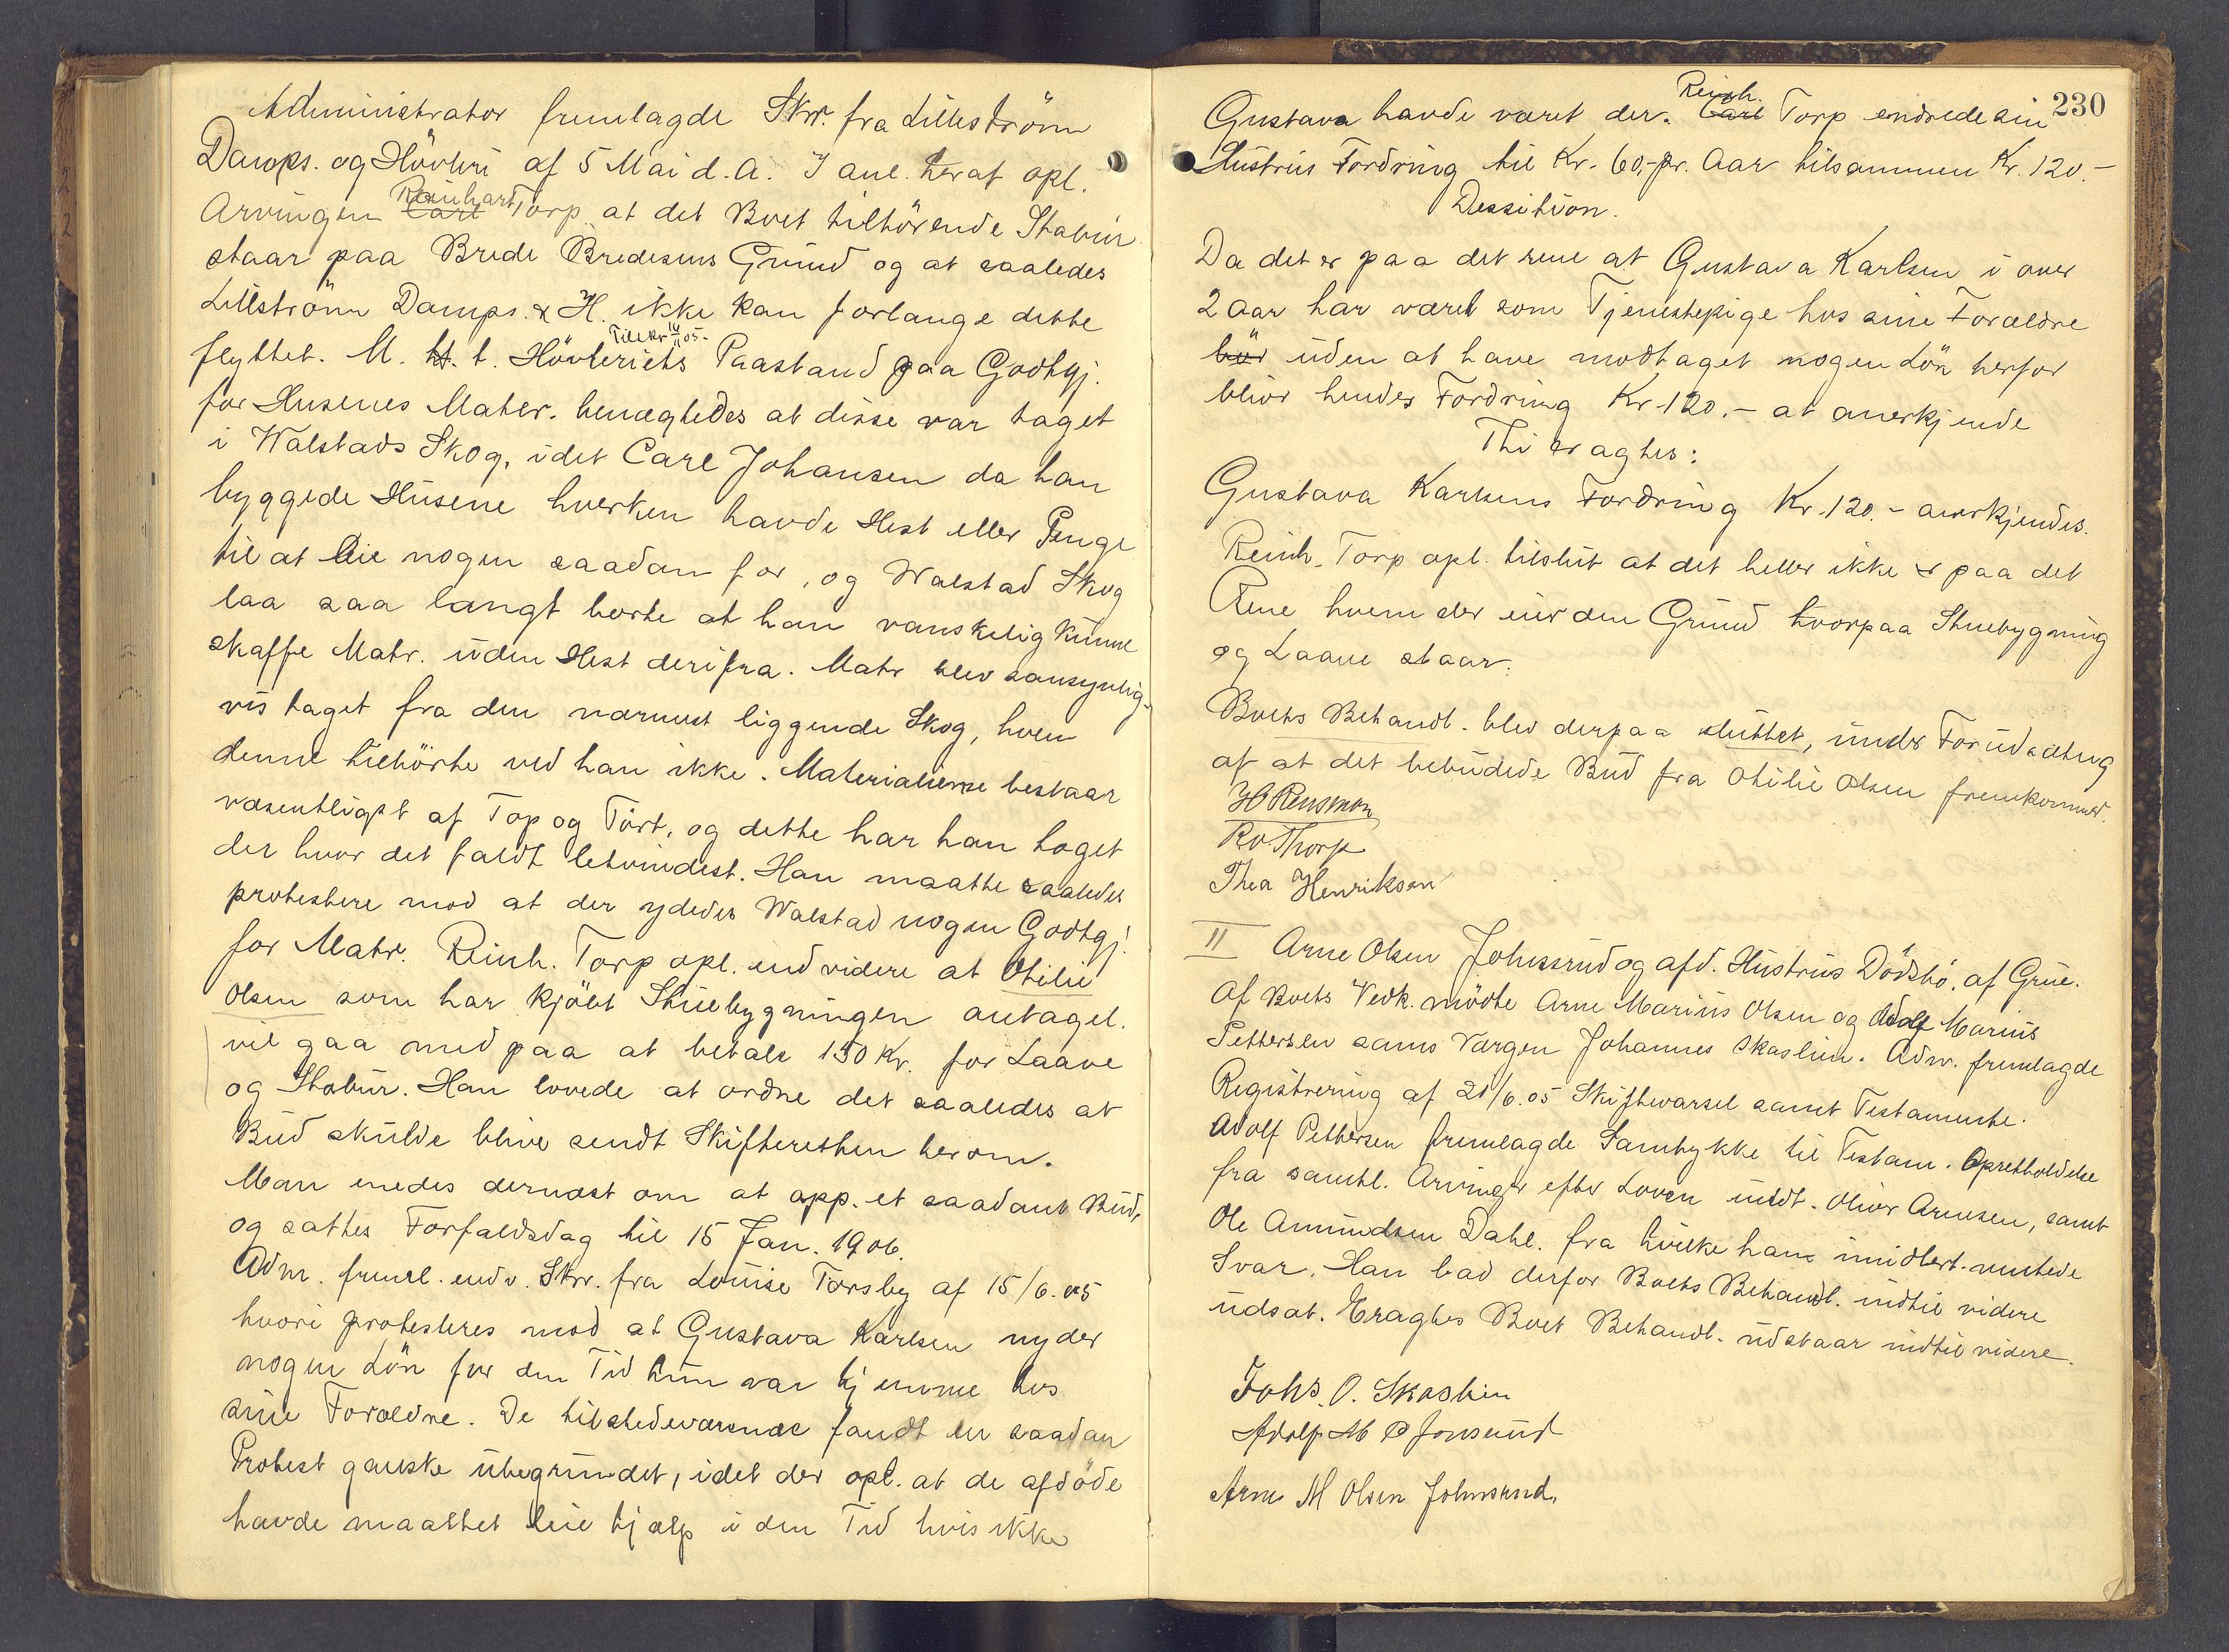 Administrator fremlagde Skr. fra Lilleström
Damps. og Hövleri af 5 Mai d. A. I anl. heraf opl.
Arvingen Reinhart Torp at det Boet tilhörende Stabur
staar paa Brede Bredesens Grund og at saaledes
Lillström Damps. & H. ikke kan forlange dette
flyttet. M. h. t. Hövleriets Paastand paa Godtgj.
for Husenes Mater. benægtedes at disse var taget
i Walstads Skog, idet Carl Johansen da han
byggede Husene hverken havde Hest eller Penge
til at leie nogen saadan for, og Walstad Skog
laa saa langt borte at han vanskelig kunne
skaffe Matr. uden Hest derifra. Matr blev sansynlig-
vis taget fra den nærmest liggende Skog, hvem
denne tilhörte ved han ikke. Materialierne bestaar
væsentligst af Top og Tört, og dette har han taget
der hvor det faldt letvindest. Han maatte saaledes
protestere mod at der ydedes Walstad nogen Godtgj.
for Matr. Reinh. Torp opl. endvidere at Otilie
Olsen som har kjöbt Stuebygningen antagel.
vil gaa med paa at betale 150 Kr. for Laave
og Stabur. Han lovede at ordne det saaledes at
Bud skulde blive sendt Skifteretten herom.
Man enedes dernæst om at app. et saadant Bud,
og sattes Forfaldsdag til 15 Jan. 1906.
Adm. freml. endv. Skr. fra Louise Torsby af 15/6.05
hvori protesteres mod at Gustava Karlsen nyder
nogen Lön for den Tid hun var hjemme hos
sine Forældre. De tilstedeværende fandt en saadan
Protest ganske ubegrundet, idet der opl. at de afdöde
havde maattet leie hjælp i den Tid hvis ikke
230
Gustava havde været der. Reinh. Torp endrede sin
Hustrus Fordring til Kr. 60,- pr. Aar tilsammen Kr. 120.-
Dessition.
Da det er paa det rene at Gustava Karlsen i over
2 aar har været som Tjenestepige hos sine Forældre
uden at have modtaget nogen Lön herfor
bliver hendes Fordring Kr. 120.- at anerkjende
Thi eragtes:
Gustava Karlsens Fordring Kr. 120.- anerkjendes.
Reinh. Torp opl. tilslut at det heller ikke er paa det
Rene hvem der eier den Grund hvorpaa Stuebygning
og Laave staar.
Boets Behandl. blev derpaa sluttet, under Forudsætning
af at det bebudede Bud fra Otilie Olsen fremkommer.
Thorp
Thea Henriksen
II Arne Olsen Johnsrud og afd. Hustrus Dödsbo, af Grue.
Af Boets Vedk. mödte Arne Marius Olsen og Adolf Marius
Pettersen sams Værgen Johannes Skaslien. Adm. fremlagde
Registrering af 21/6.05 Skiftevarsel samt Testamente.
Adolf Pettersen fremlagde Samtykke til Testam. Opretholdelse
fra samtl. Arvinger efter Loven undt. Oliver Arnesen, samt
Ole Amundsen Dahl. fra hvilke han imidlert. ventede
Svar. Han bad derfor Boets Behandl. indtil videre
udsat. Eragtes Boet Behandl. udstaar indtil videre.
Johs. O. Skaslien
Adolf M P Jonsrud
Arne M Olsen Johnsrud,